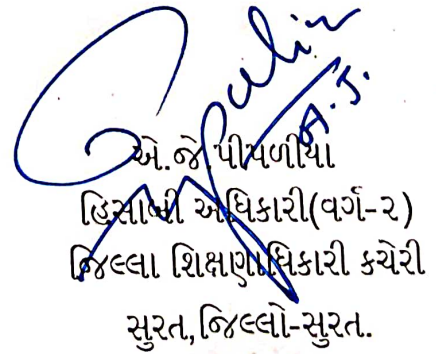 A.J.
એ.જે.પીપળીયા
હિસાબી અધિકારી(વર્ગ-૨)
જિલ્લા શિક્ષણાધિકારી કચેરી
સુરત,જિલ્લો-સુરત.